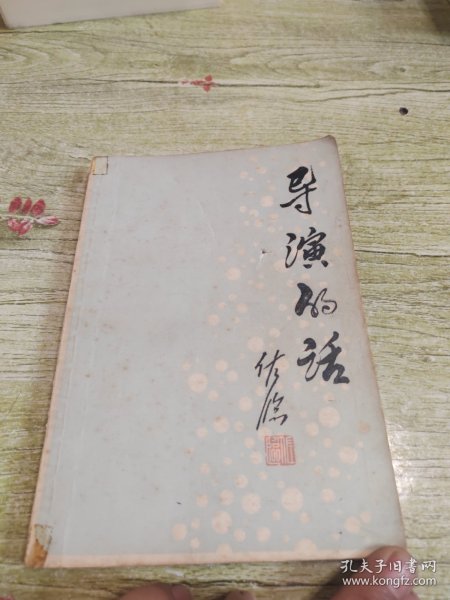 导演的话
佐临
孔夫子旧书网
www.kongfz.com